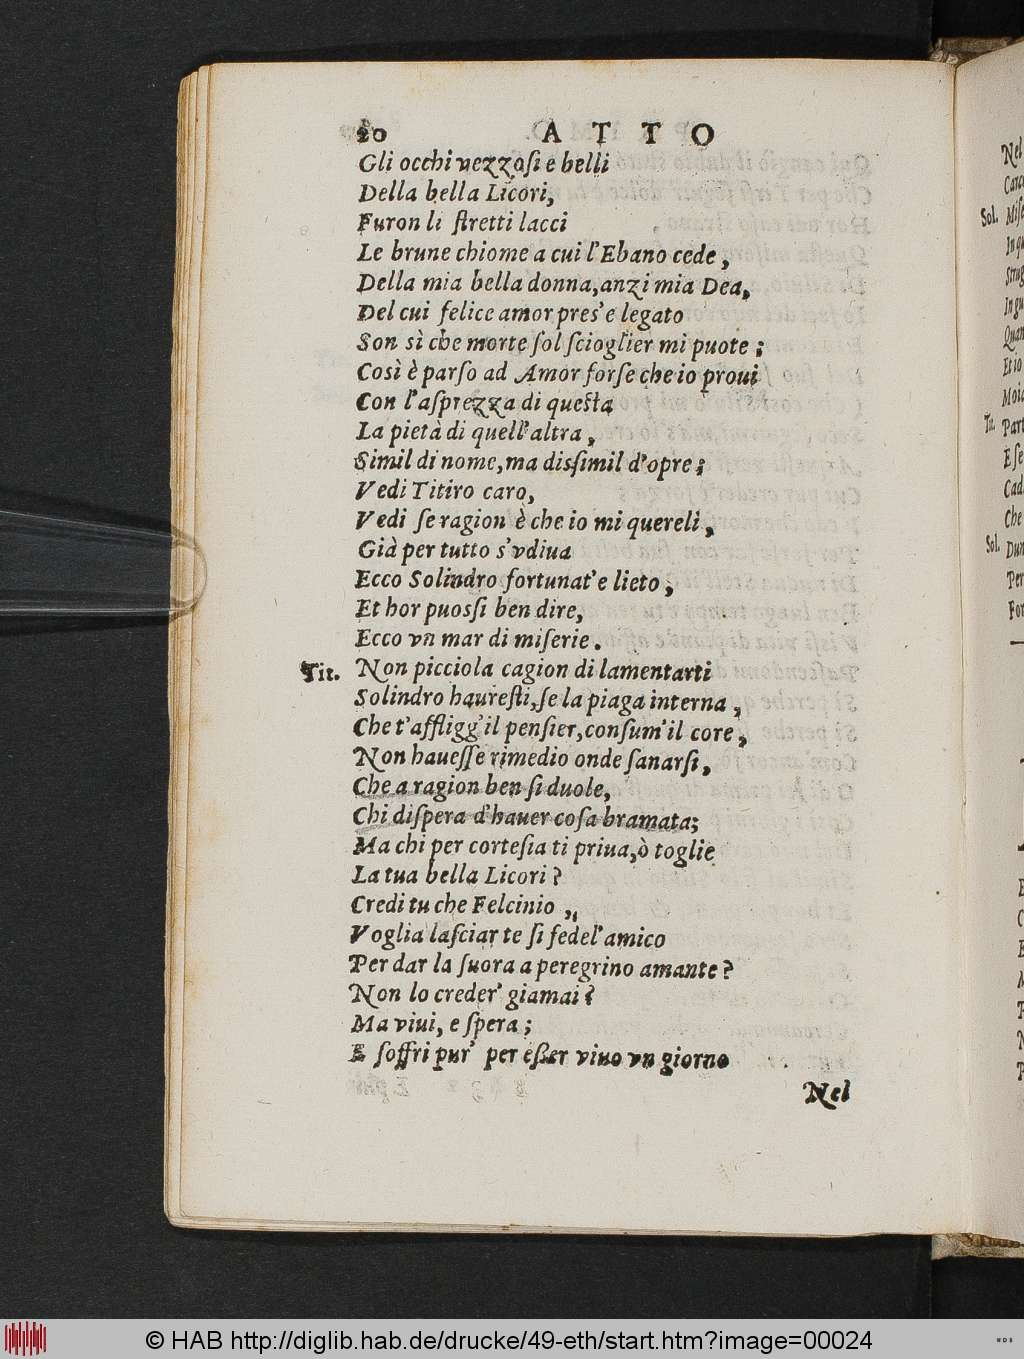 20 ATTO
Gli occhi uezzoſi e belli
Della bella Licori,
Furon li ſtretti lacci
Le brune chiome a cui l'Ebano cede,
Della mia bella donna, anzi mia Dea,
Del cui felice amor pres'e legato
Son sì che morte ſol ſcioglier mi puote;
Così è parſo ad Amor forſe che io proui
Con l'aſprezza di queſta
La pietà di quell'altra,
Simil di nome, ma disſimil d'opre;
Vedi Titiro caro,
Vedi ſe ragion è che io mi quereli,
Già per tutto s'vdiua
Ecco Solindro fortunat'e lieto,
Et hor puosſi ben dire,
Ecco vn mar di miſerie.
Tit. Non picciola cagion di lamentarti
Solindro haureſti, ſe la piaga interna,
Che t'affligg'il penſier, conſum'il core,
Non haueſſe rimedio onde ſanarſi,
Che a ragion ben ſi duole,
Chi diſpera d'hauer coſa bramata;
Ma chi per corteſia ti priua, ò toglie
La tua bella Licori?
Credi tu che Felcinio,
Voglia laſciar te ſi fedel'amico
Per dar la ſuora a peregrino amante?
Non lo creder' giamai?
Ma viui, e ſpera;
E ſoffri pur' per eſſer viuo vn giorno
Nel
Nel
Sol.
Ta.
Part
Sol.
Per
For
© HAB http://diglib.hab.de/drucke/49-eth/start.htm?image=00024